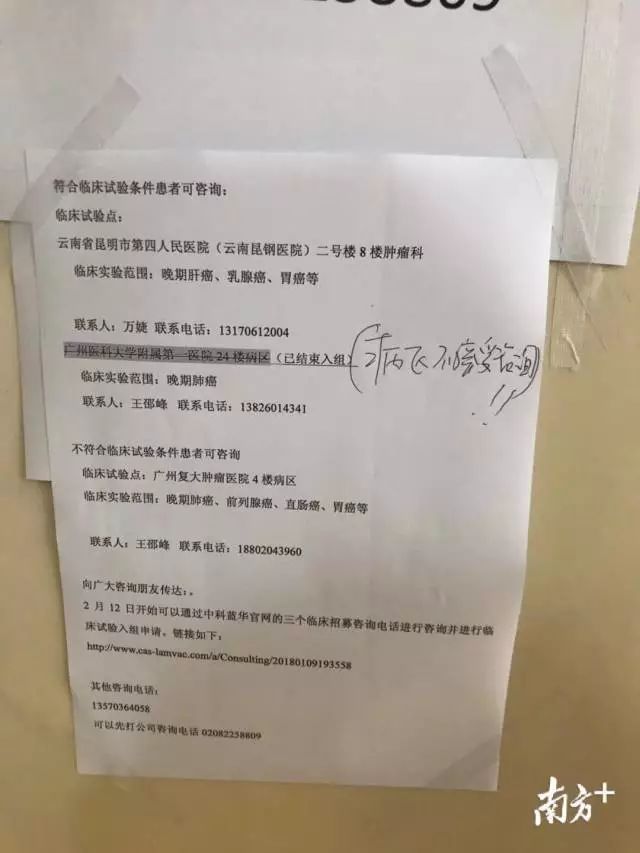 符合临床试验条件患者可咨询：
临床试验点：
云南省昆明市第四人民医院（云南昆钢医院）二号楼 8 楼肿瘤科
临床实验范围：晚期肝癌、乳腺癌、胃癌等
联系人：万婕 联系电话：13170612004
广州医科大学附属第一医院 24 楼病区（已结束入组）
(病区不接受咨询)!!
临床实验范围：晚期肺癌
联系人：王邵峰 联系电话：13826014341
不符合临床试验条件患者可咨询
临床试验点：广州复大肿瘤医院 4 楼病区
临床实验范围：晚期肺癌、前列腺癌、直肠癌、胃癌等
联系人：王邵峰 联系电话：18802043960
向广大咨询朋友传达：。
2 月 12 日开始可以通过中科蓝华官网的三个临床招募咨询电话进行咨询并进行临
床试验入组申请。链接如下：
http://www.cas-lamvac.com/a/Consulting/20180109193558
其他咨询电话：
13570364058
可以先打公司咨询电话 02082258809
南方+